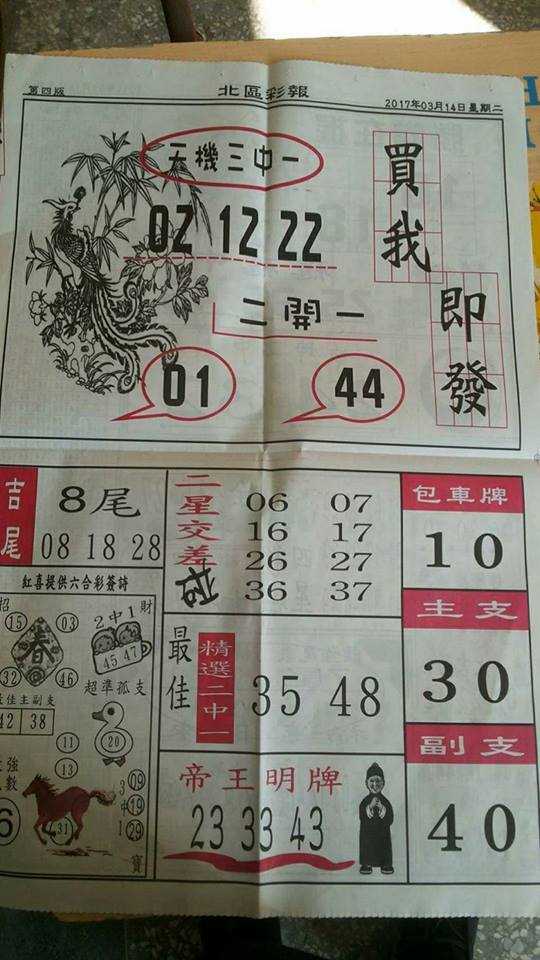 第四版
北區彩報
2017年03月14日星期二
天機三中一
02 12 22
二開一
01
44
買我
即發
吉尾
8尾
08 18 28
紅喜提供六合彩簽詩
招
15
03
春
32
46
2中1
財
45 47
超準孤支
20
佳主副支
42 38
11
13
強
數
6
31
3中1
09
19
29
寶
二星交差
06 07
16 17
26 27
36 37
最佳
精選二中一
35 48
帝王明牌
23 33 43
包車牌
10
主支
30
副支
40